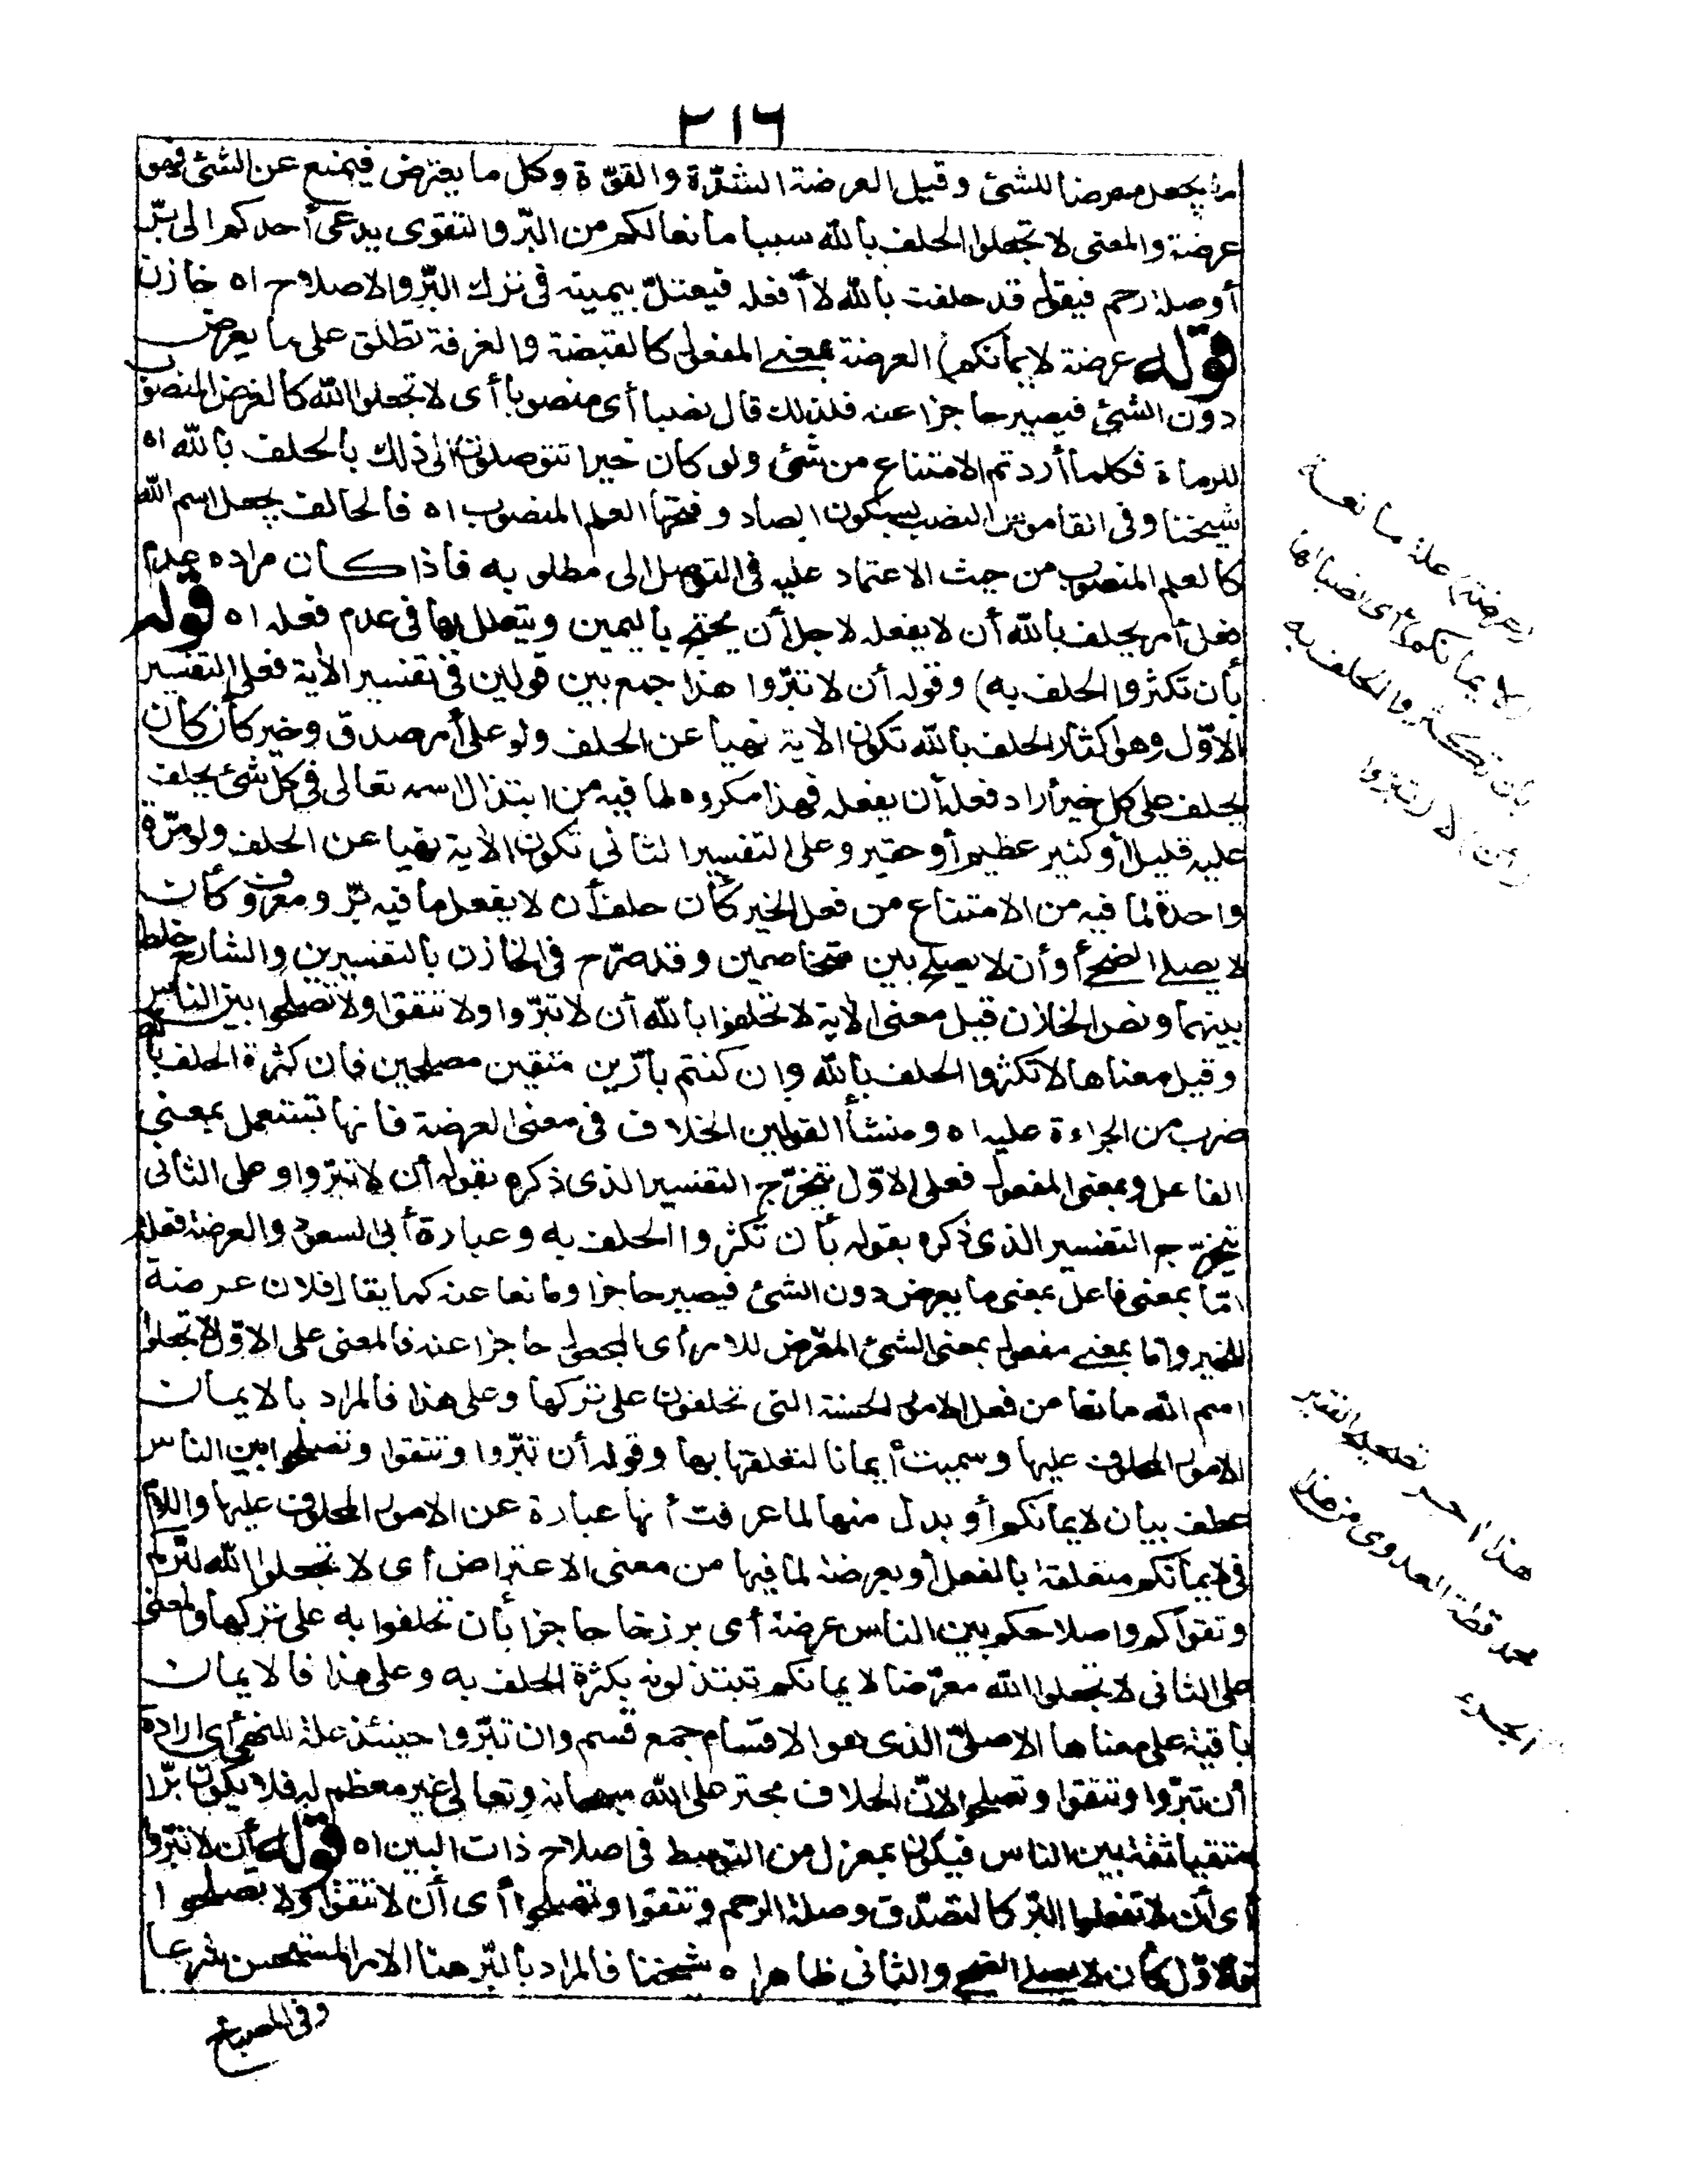 ٢١٦
ما يجعل معرضا للشئ وقيل العرضة الشدّة والقوّة وكل ما يعترض فيمنع عن الشئ فهو
عرضة والمعنى لا تجعلوا الحلف بالله سببا مانعا لكم من البرّ والتقوى يدعى أحدكم الى برّ
أو صلة رحم فيقول قد حلفت بالله لا أفعله فيعتلّ بيمينه فى ترك البرّ والاصلاح اه خازن
قوله عرضة لايمانكم) العرضة بمعنى المفعول كالقبضة والغرفة تطلق على ما يعرض
دون الشئ فيصير حاجزا عنه فلذلك قال نصبا أى منصوبا أى لا تجعلوا الله كالغرض المنصوب
للرماة فكلما أردتم الامتناع من شئ ولو كان خيرا تتوصلون الى ذلك بالحلف بالله اه
شيخنا وفى القاموس النصب بسكون الصاد وفتحها العلم المنصوب اه فالحالف يجعل اسم الله
كالعلم المنصوب من حيث الاعتماد عليه فى التوصل الى مطلوبه فاذا كان مراده عدم
فعل أمر يحلف بالله أن لا يفعله لاجل أن يحتج باليمين ويتعلل بها فى عدم فعله اه قوله
بأن تكثروا الحلف به) وقوله أن لا تبرّوا هذا جمع بين قولين فى تفسير الآية فعلى التفسير
الاوّل وهو اكثار الحلف بالله تكون الآية نهيا عن الحلف ولو على أمر صدق وخير كأن كان
يحلف على كل خير أراد فعله أن يفعله فهذا مكروه لما فيه من ابتذال اسمه تعالى فى كل شئ يحلف
عليه قليل أو كثير عظيم أو حقير وعلى التفسير الثانى تكون الآية نهيا عن الحلف ولو مرّة
واحدة لما فيه من الامتناع من فعل الخير كأن حلف أن لا يفعل ما فيه برّ ومعروف كأن
لا يصلى الضحى أو أن لا يصلح بين متخاصمين وقد صرّح فى الخازن بالتفسيرين والشارح خلط
بينهما ونص الخازن قيل معنى الآية لا تحلفوا بالله أن لا تبرّوا ولا تتقوا ولا تصلحوا بين الناس
وقيل معناها لا تكثروا الحلف بالله وان كنتم بارّين متقين مصلحين فان كثرة الحلف بالله
ضرب من الجراءة عليه اه ومنشأ القولين الخلاف فى معنى العرضة فانها تستعمل بمعنى
الفاعل وبمعنى المفعول فعلى الاوّل يتخرّج التفسير الذى ذكره بقوله أن لا تبرّوا وعلى الثانى
يتخرّج التفسير الذى ذكره بقوله بأن تكثروا الحلف به وعبارة أبى السعود والعرضة فعلة
امّا بمعنى فاعل بمعنى ما يعرض دون الشئ فيصير حاجزا ومانعا عنه كما يقال فلان عرضة
للخير وامّا بمعنى مفعول بمعنى الشئ المعرّض للامر أى المجعول حاجزا عنه فالمعنى على الاوّل لا تجعلوا
اسم الله مانعا من فعل الامور الحسنة التى تحلفون على تركها وعلى هذا فالمراد بالايمان
الامور المحلوف عليها وسميت أيمانا لتعلقها بها وقوله أن تبرّوا وتتقوا وتصلحوا بين الناس
عطف بيان لايمانكم أو بدل منها لما عرفت أنها عبارة عن الامور المحلوف عليها واللام
فى لايمانكم متعلقة بالفعل أو بعرضة لما فيها من معنى الاعتراض أى لا تجعلوا الله لبرّكم
وتقواكم واصلاحكم بين الناس عرضة أى برزخا حاجزا بأن تحلفوا به على تركها والمعنى
على الثانى لا تجعلوا الله معرّضا لايمانكم تبتذلونه بكثرة الحلف به وعلى هذا فالايمان
باقية على معناها الاصلىّ الذى هو الاقسام جمع قسم وان تبرّوا حينئذ علة للنهى أى ارادة
أن تبرّوا وتتقوا وتصلحوا لانّ الحلاف مجترئ على الله سبحانه وتعالى غير معظم له فلا يكون برّا
متقيا ثقة بين الناس فيكون بمعزل من التوسط فى اصلاح ذات البين اه قوله أن لا تبرّوا
أى أن لا تفعلوا البرّ كالتصدّق وصلة الرحم وتتقوا وتصلحوا أى أن لا تتقوا ولا تصلحوا
فالاوّل كأن لا يصلى الضحى والثانى ظاهر اه شيخنا فالمراد بالبرّ هنا الامر المستحسن شرعا
وفى المصباح
(عرضة) علة مانعة
لايمانكم) أى نصبا لها
بأن تكثروا الحلف به
أن) لا (تبرّوا
هذا احد تصحيح الفقير
محمد قطة العدوى من هذا
الجزء